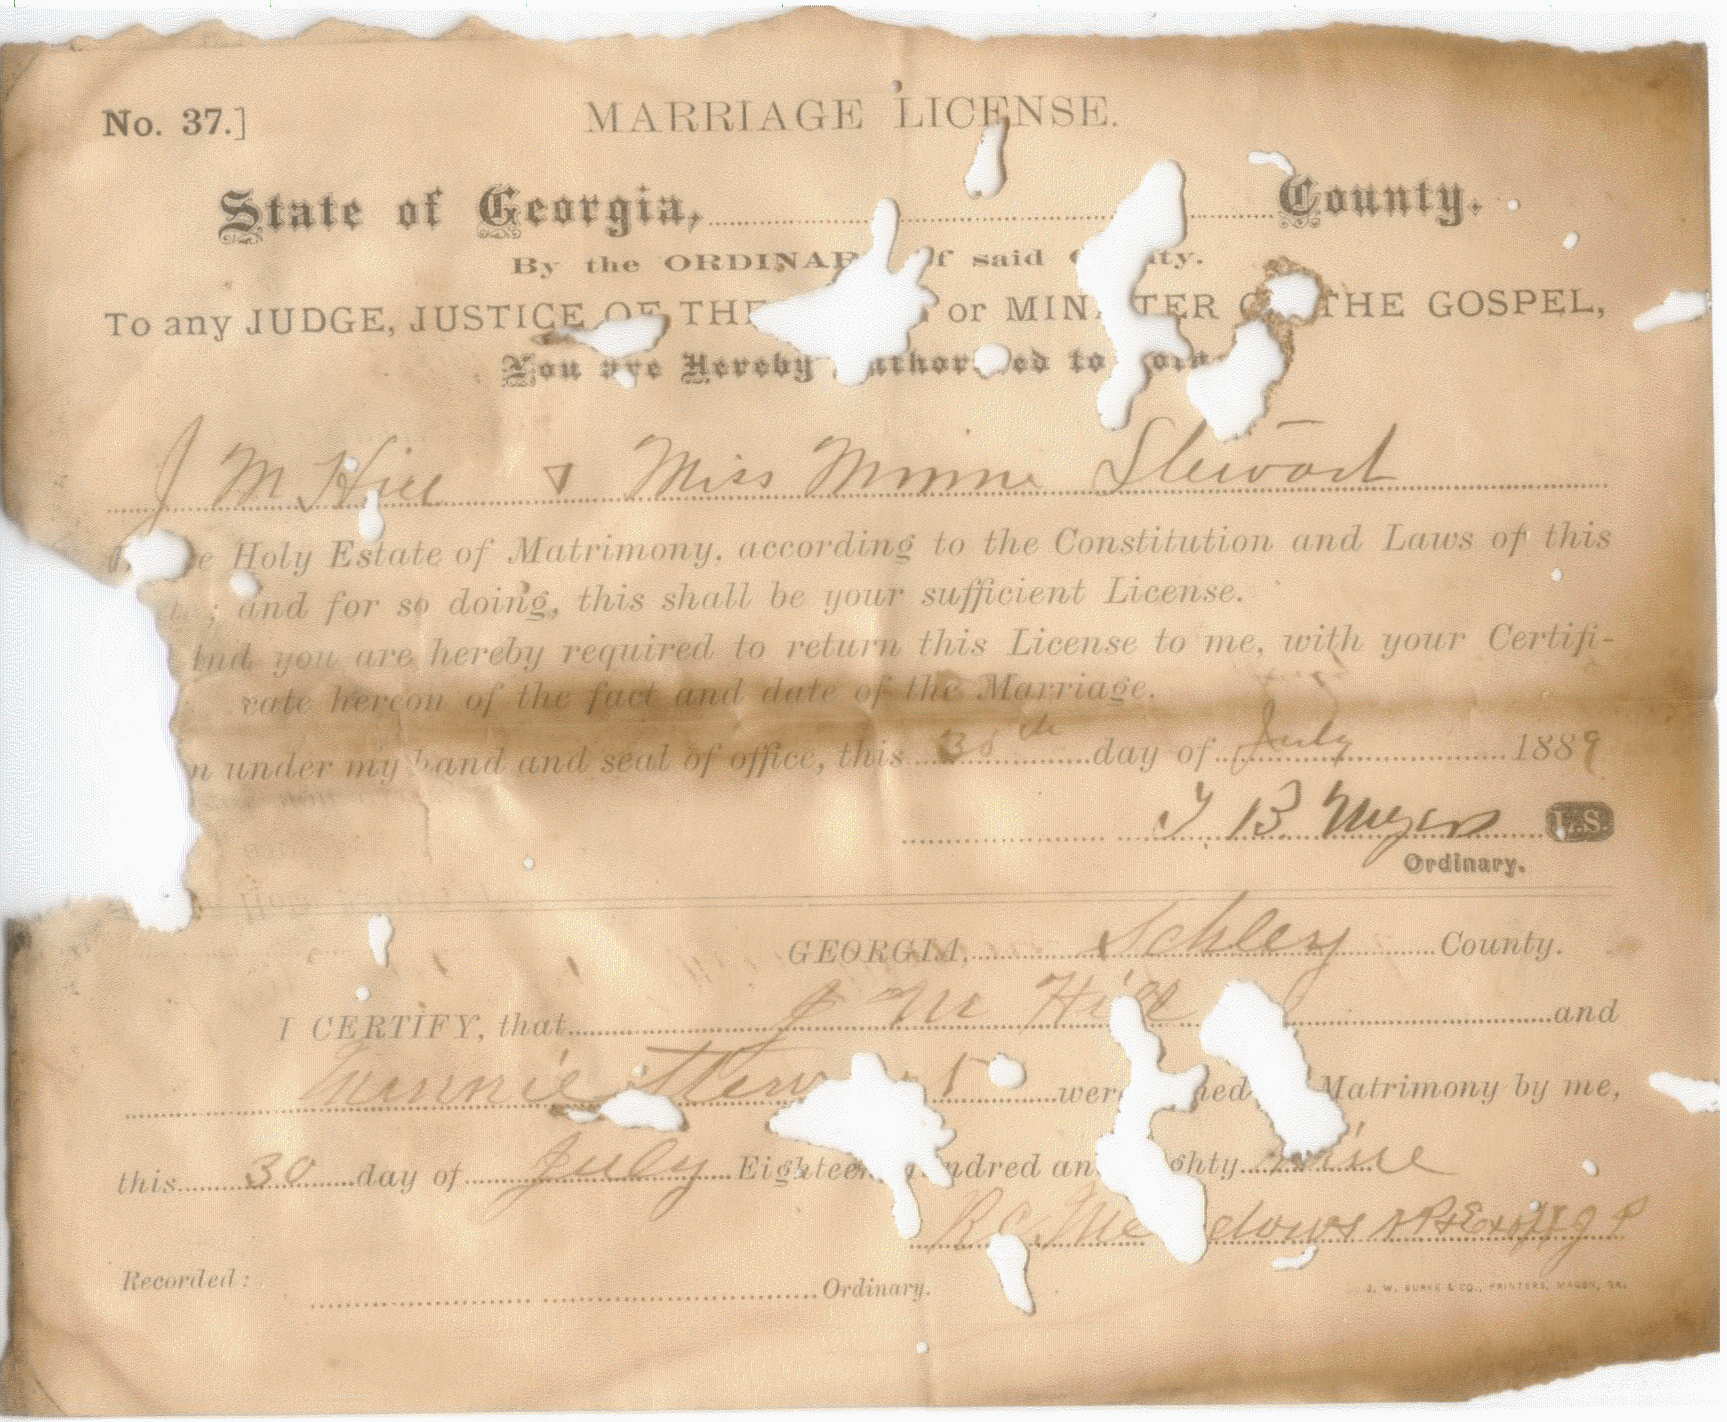 No. 37.]
MARRIAGE LICENSE.
State of Georgia, County.
By the ORDINAR f said ty.
To any JUDGE, JUSTICE OF THE or MIN TER THE GOSPEL,
You are Hereby uthor ed to Join
J M Hill & Miss Minnie Stewart
e Holy Estate of Matrimony, according to the Constitution and Laws of this
; and for so doing, this shall be your sufficient License.
And you are hereby required to return this License to me, with your Certifi-
cate hereon of the fact and date of the Marriage.
n under my hand and seal of office, this 30th day of July 1889
B Myers L.S.
Ordinary.
GEORGIA, Schley County.
I CERTIFY, that J M Hill and
Minnie Stew t were ned Matrimony by me,
this 30 day of July Eighteen undred an ighty nine
R C Me dows
Recorded: Ordinary.
J. W. BURKE & CO., PRINTERS, MACON, GA.